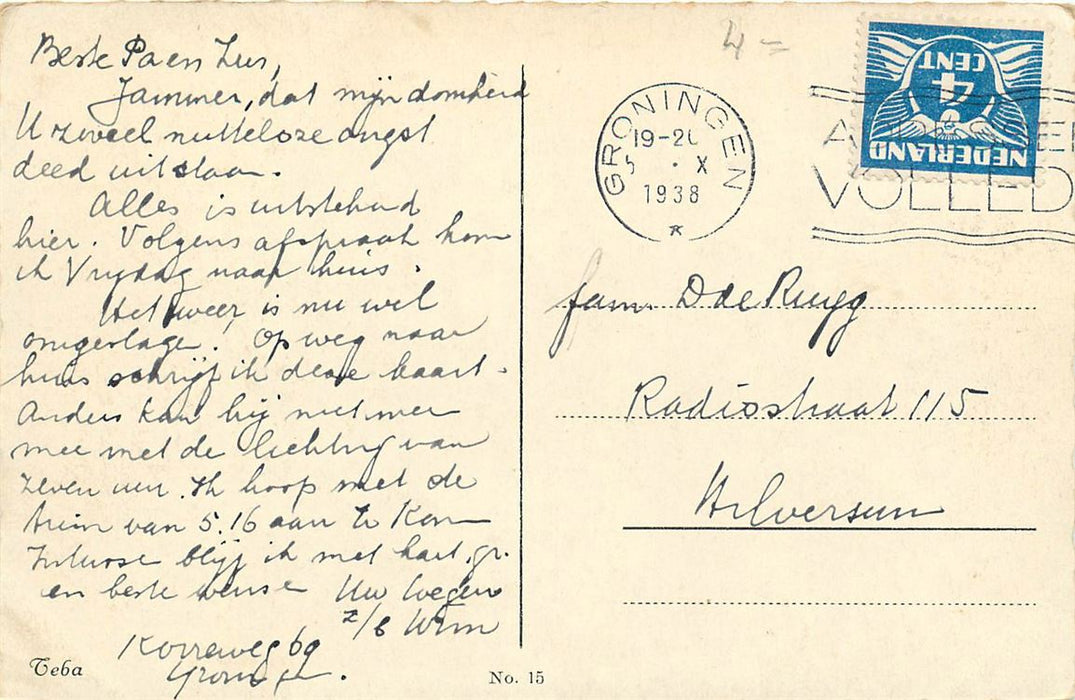 Beste Pa en Zus,
Jammer, dat mijn domheid
U zoveel nutteloze angst
deed uitstaan.
Alles is uitstekend
hier. Volgens afspraak kom
ik Vrijdag naar huis.
Het weer is nu wel
omgeslagen! Op weg naar
huis schrijf ik deze kaart.
Anders kan hij niet meer
mee met de lichting van
zeven uur. Ik hoop met de
trein van 5.16 aan te kom
Intusse blijf ik met hart. gr.
en beste wense Uw toegen
z/b Wim
Korreweg 69
Groninge.
Teba
No. 15
4 =
GRONINGEN
19-20
5 . X
1938
VOLLED
4
CENT
NEDERLAND
fam. D de Ruyg
Radiostraat 115
Hilversum